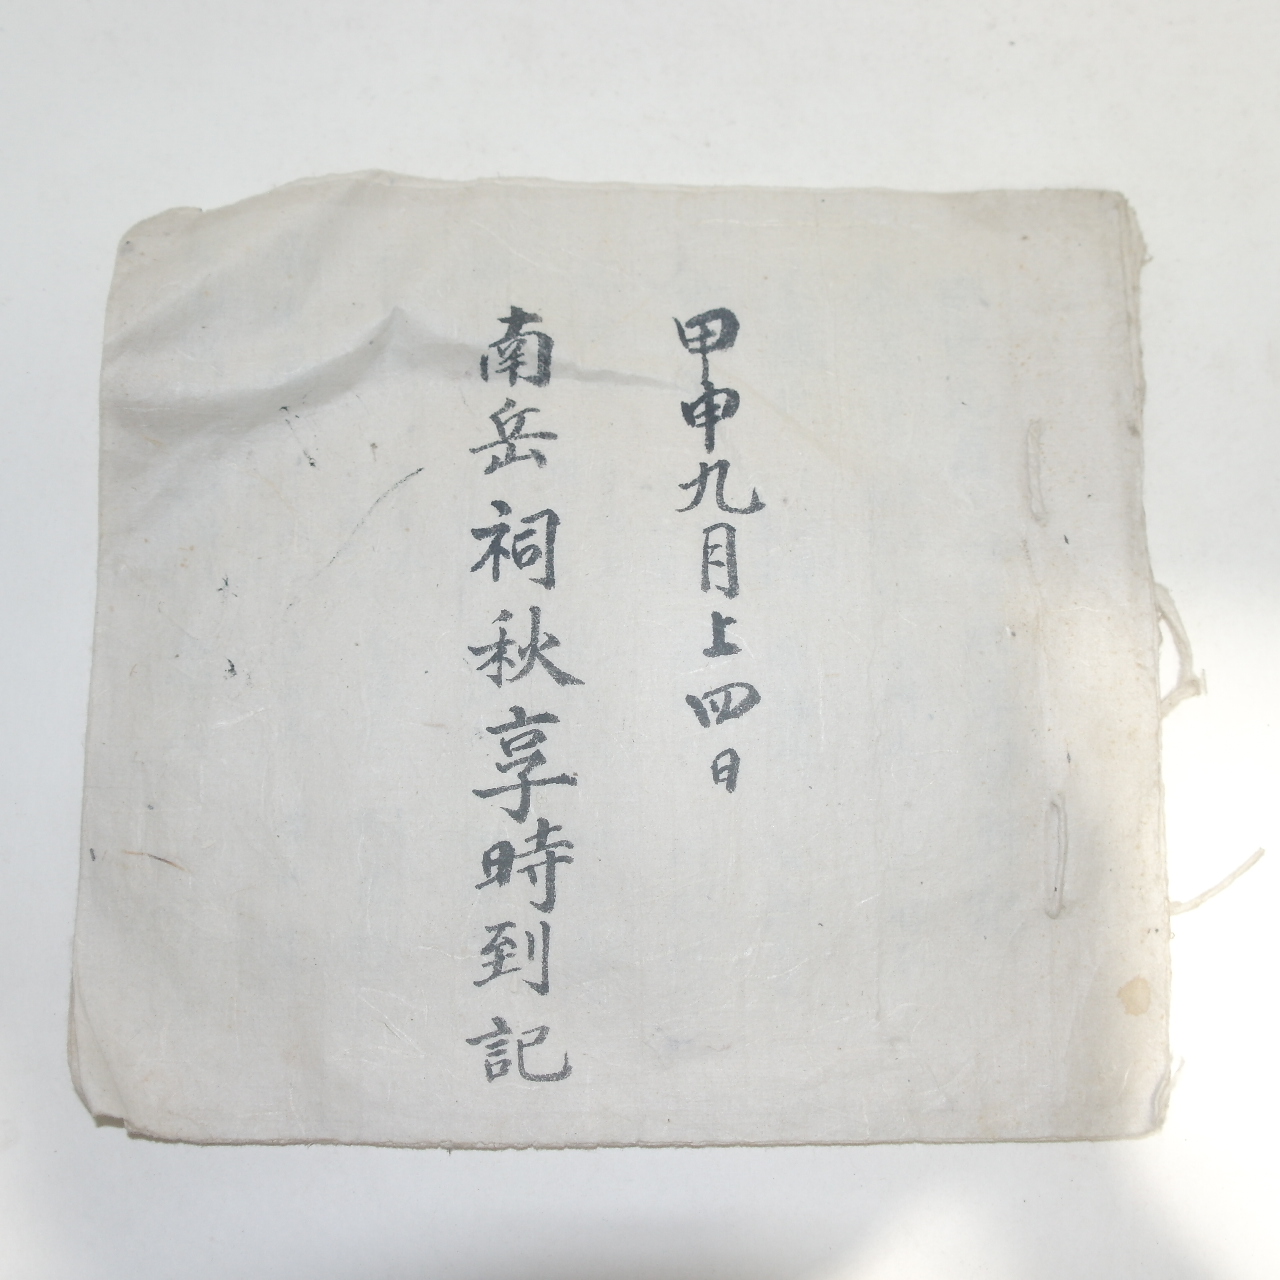 甲申九月上四日
南岳祠秋享時到記